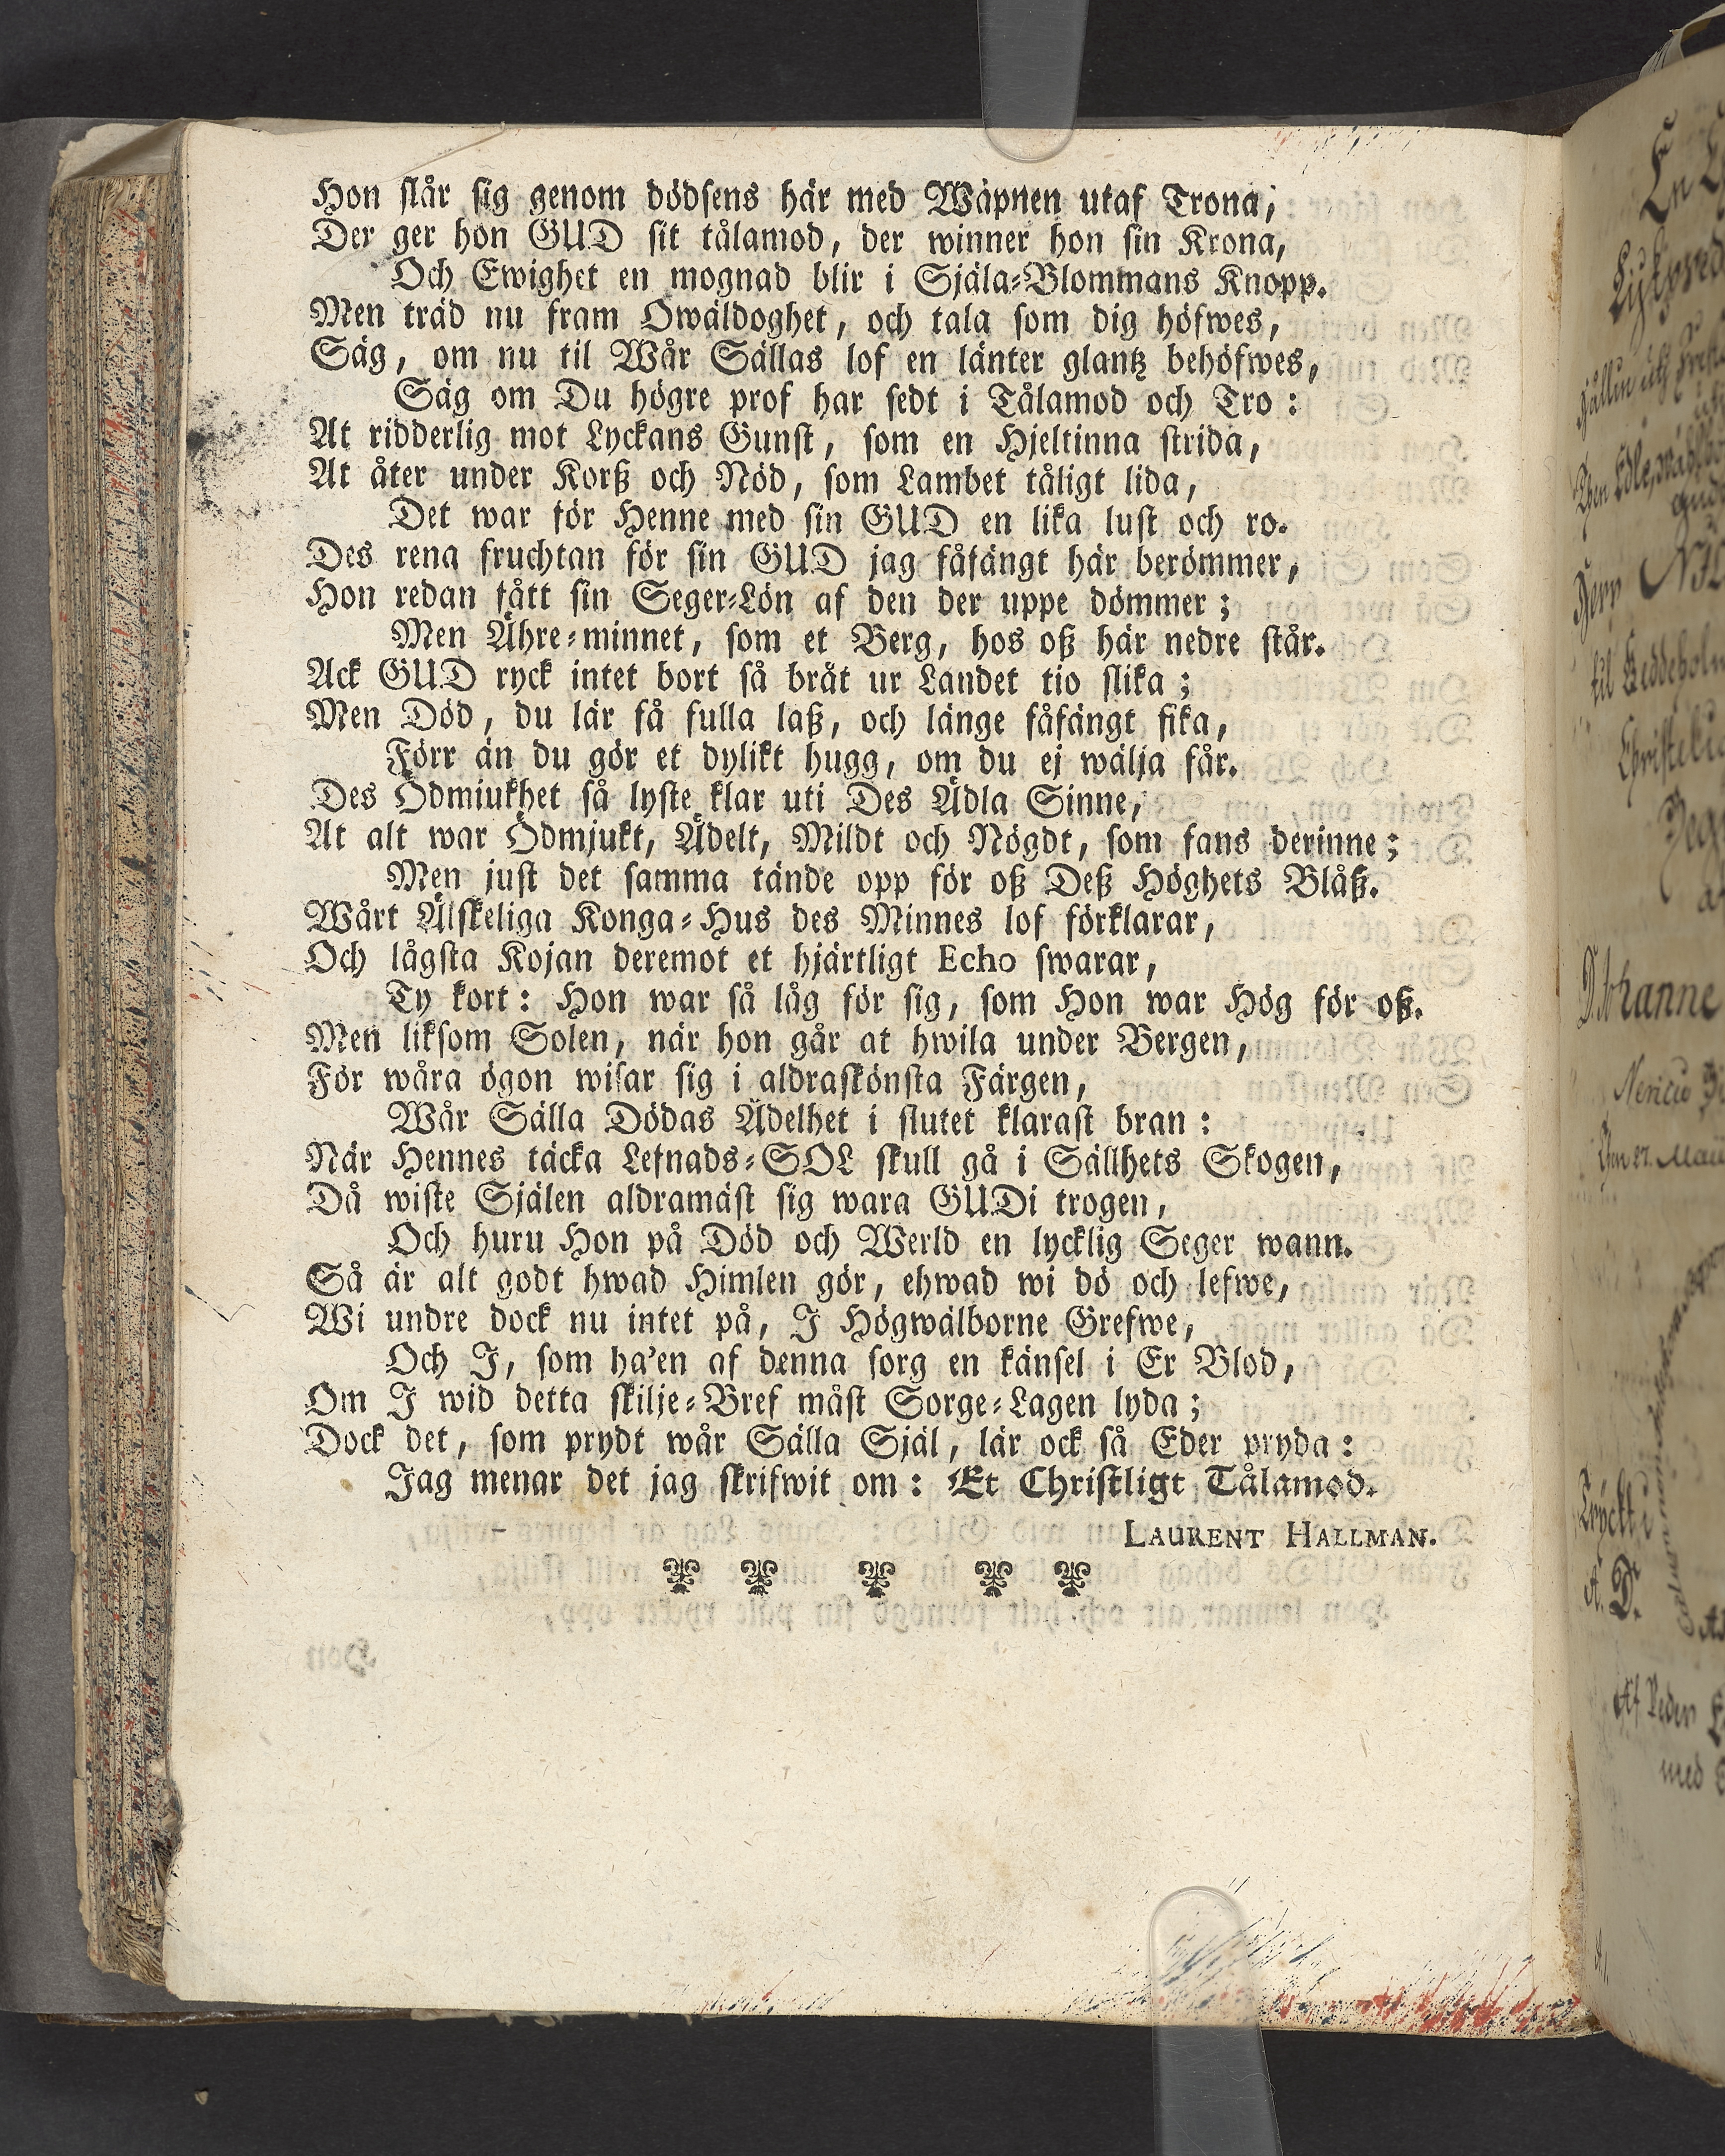 Hon slår sig genom dödsens här med Wäpnen utaf Trona,
Der ger hon GUD sit tålamod, der winner hon sin Krona,
Och Ewighet en mognad blir i Själa-Blommans Knopp.
Men träd nu fram Owäldoghet, och tala som dig höfwes,
Säg, om nu til Wår Sällas lof en länter glantz behöfwes,
Säg om Du högre prof har sedt i Tålamod och Tro:
At ridderlig mot Lyckans Gunst, som en Hjeltinna strida,
At åter under Korß och Nöd, som Lambet tåligt lida,
Det war för Henne med sin GUD en lika lust och ro.
Des rena fruchtan för sin GUD jag fåfängt här berömmer,
Hon redan fått sin Seger-Lön af den der uppe dömmer;
Men Ähre-minnet, som et Berg, hos oß här nedre står.
Ack GUD ryck intet bort så bråt ur Landet tio slika;
Men Död, du lär få fulla laß, och länge fåfängt fika,
Förr än du gör et dylikt hugg, om du ej wälja får.
Des Ödmiukhet så lyste klar uti Des Ädla Sinne,
At alt war Ödmjukt, Ädelt, Mildt och Nögdt, som fans derinne;
Men just det samma tände opp för oß Deß Höghets Blåß.
Wårt Älskeliga Konga-Hus des Minnes lof förklarar,
Och lågsta Kojan deremot et hjärtligt Echo swarar,
Ty kort: Hon war så låg för sig, som Hon war Hög för oß.
Men liksom Solen, när hon går at hwila under Bergen,
För wåra ögon wisar sig i aldraskönsta Färgen,
Wår Sälla Dödas Ädelhet i slutet klarast bran:
När Hennes täcka Lefnads-SOL skull gå i Sällhets Skogen,
Då wiste Själen aldramäst sig wara GUDi trogen,
Och huru Hon på Död och Werld en lycklig Seger wann.
Så är alt godt hwad Himlen gör, ehwad wi dö och lefwe,
Wi undre dock nu intet på, J Högwälborne Grefwe,
Och J, som ha'en af denna sorg en känsel i Er Blod,
Om J wid detta skilje-Bref måst Sorge-Lagen lyda;
Dock det, som prydt wår Sälla Själ, lär ock så Eder pryda:
Jag menar det jag skrifwit om: Et Christligt Tålamod.
LAURENT HALLMAN.